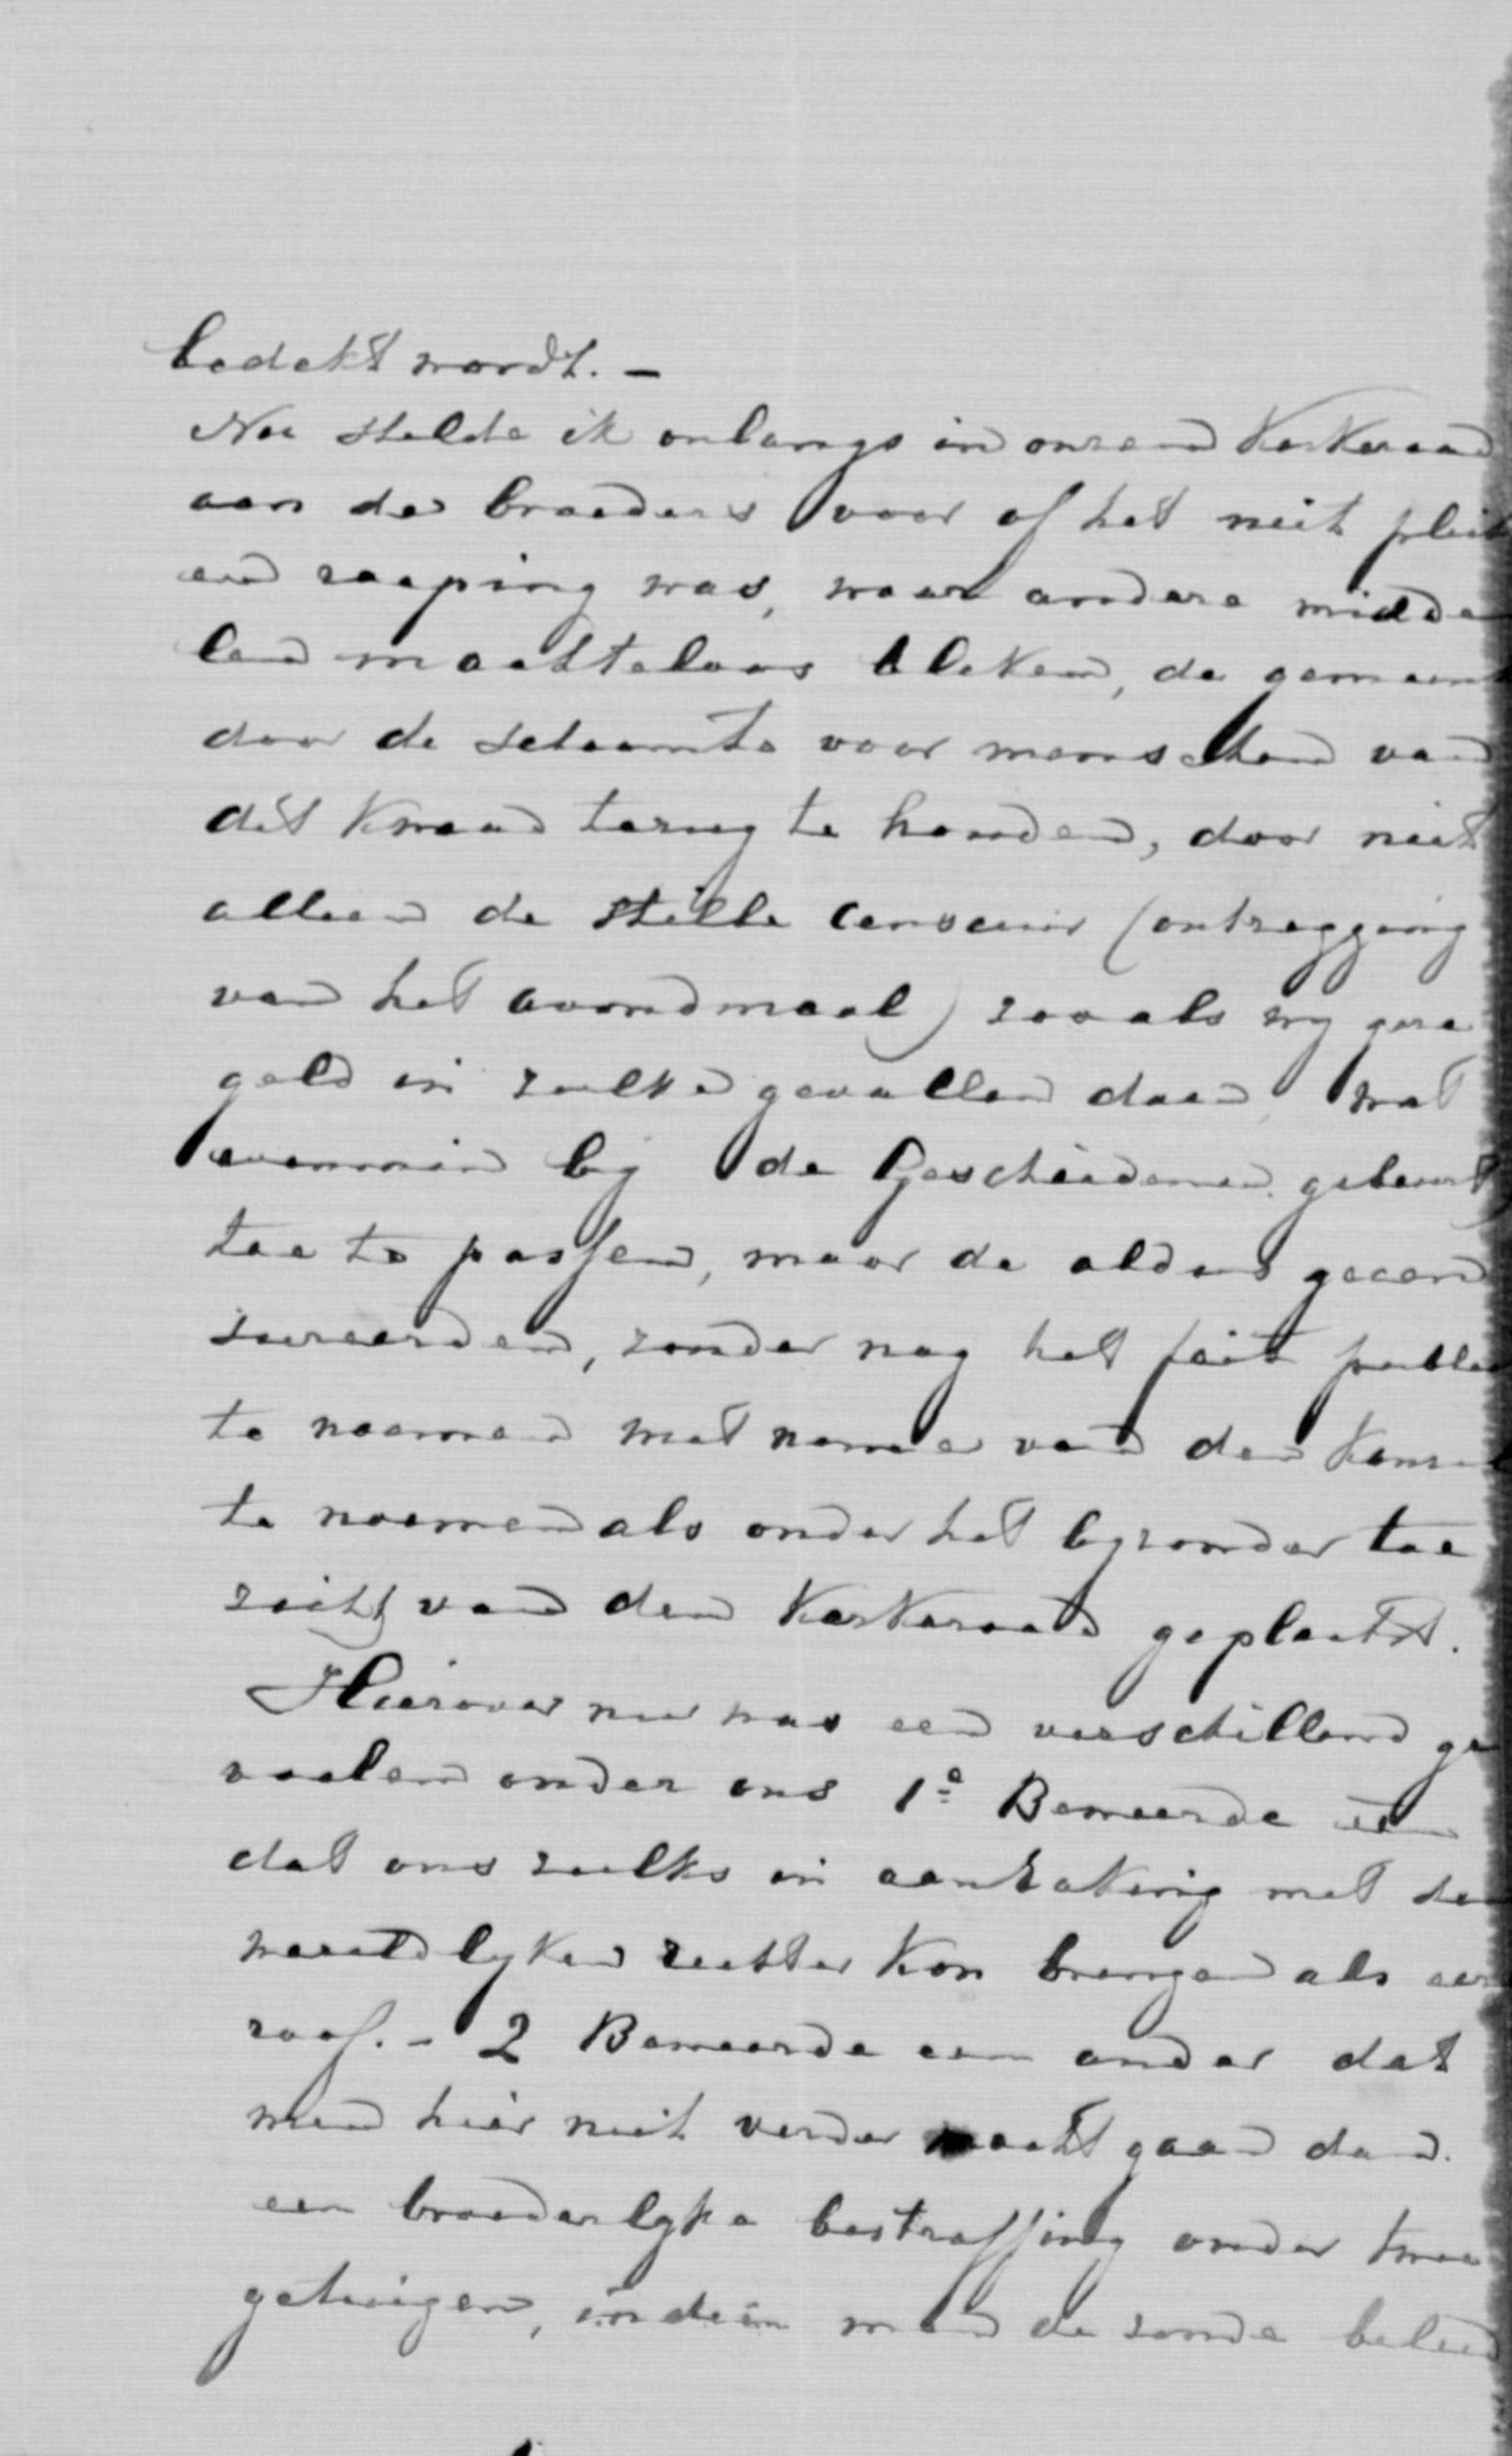 bedekt wordt. -
Nu stelde ik onlangs in onzen Kerkeraad
aan de broeders voor of het niet plicht
en roeping was, waar andere midde
len machteloos bleken, de gemeent
door de schaamte voor menschen van
dit kwaad terug te houden, door niet
alleen de stille censuur (ontzegging
van het avondmaal) zooals wy gere
geld in zulke gevallen doen, wat
evenmin by de Gescheidenen gebeurt
toe te passen, maar de aldus gecen
sureerden, zonder nog het feit publie
te noemen met name van den Kansel
te noemen als onder het byzonder toe
zicht van den Kerkeraad geplaatst.
Hierover nu was een verschillend ge
voelen onder ons 1e Beweerde een
dat ons zulks in aanraking met den
wereldlyken rechter kon brengen als eer
roof. - 2 Beweerde een ander dat
men hier niet verder mocht gaan dan
een broederlyke bestraffing onder twee
getuigen, indien men de zonde beleed